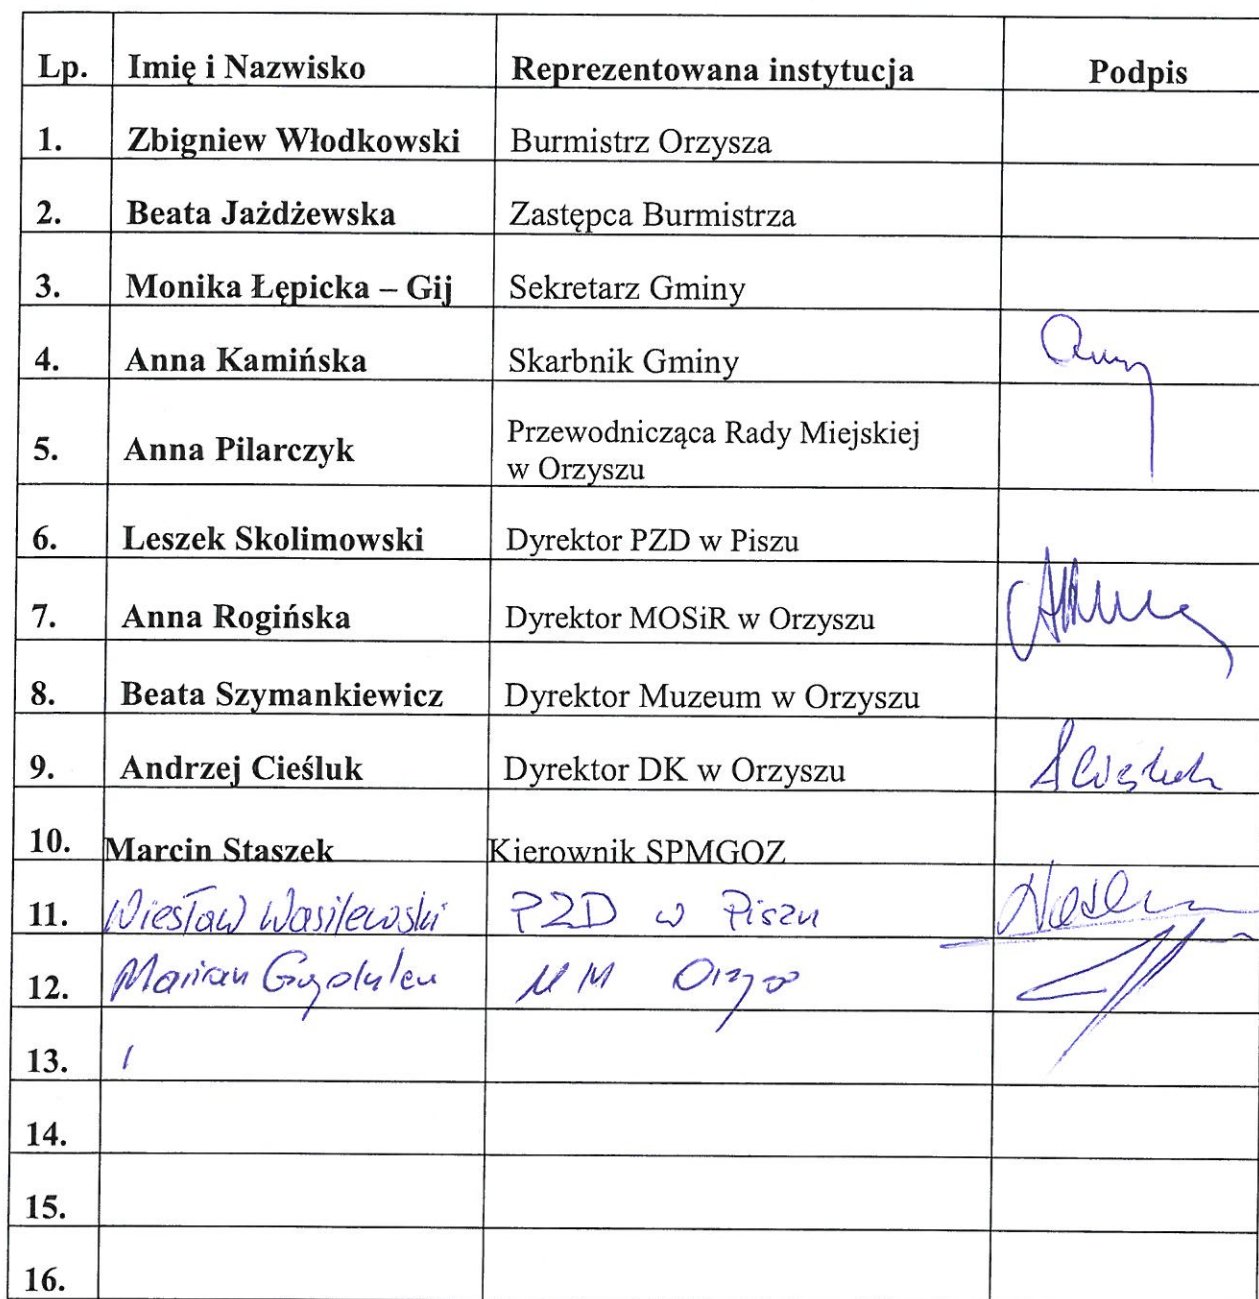 Lp. Imię i Nazwisko Reprezentowana instytucja Podpis
1. Zbigniew Włodkowski Burmistrz Orzysza
2. Beata Jażdżewska Zastępca Burmistrza
3. Monika Łępicka – Gij Sekretarz Gminy
4. Anna Kamińska Skarbnik Gminy
5. Anna Pilarczyk Przewodnicząca Rady Miejskiej
w Orzyszu
6. Leszek Skolimowski Dyrektor PZD w Piszu
7. Anna Rogińska Dyrektor MOSiR w Orzyszu
8. Beata Szymankiewicz Dyrektor Muzeum w Orzyszu
9. Andrzej Cieśluk Dyrektor DK w Orzyszu
10. Marcin Staszek Kierownik SPMGOZ
11. Wiesław Wasilewski PZD w Piszu
12. Marian
13.
14.
15.
16.